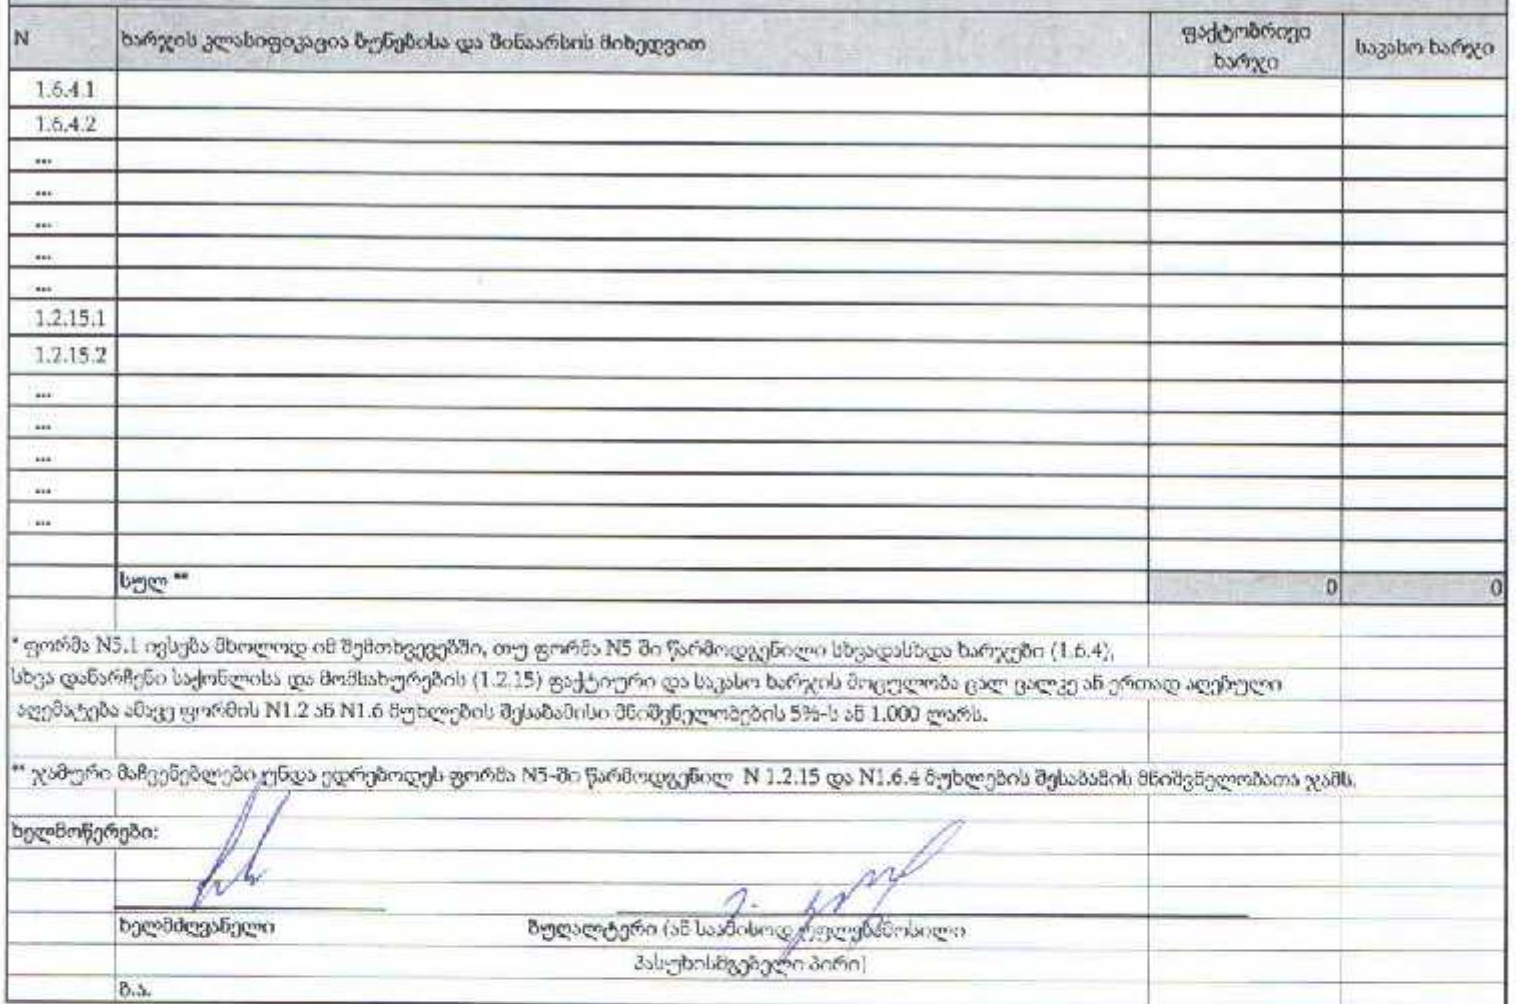 N ხარჯის კლასიფიკაცია ბუნებისა და შინაარსის მიხედვით ფაქტობრივი ხარჯი საკასო ხარჯი
1.6.4.1
1.6.4.2
...
...
...
...
...
1.2.15.1
1.2.15.2
...
...
...
...
...
სულ ** 0 0
* ფორმა N5.1 ივსება მხოლოდ იმ შემთხვევებში, თუ ფორმა N5 ში წარმოდგენილი სხვადასხდა ხარჯები (1.6.4),
სხვა დანარჩენი საქონლისა და მომსახურების (1.2.15) ფაქტიური და საკასო ხარჯის მოცულობა ცალ ცალკე ან ერთად აღებული
აღემატება ამავე ფორმის N1.2 ან N1.6 მუხლების შესაბამისი მნიშვნელობების 5%-ს ან 1.000 ლარს.
** ჯამური მაჩვენებლები უნდა უდრებოდეს ფორმა N5-ში წარმოდგენილ N 1.2.15 და N1.6.4 მუხლების შესაბამის მნიშვნელობათა ჯამს.
ხელმოწერები:
ხელმძღვანელი ბუღალტერი (ან საამისოდ უფლებამოსილი
პასუხისმგებელი პირი)
ბ.ა.